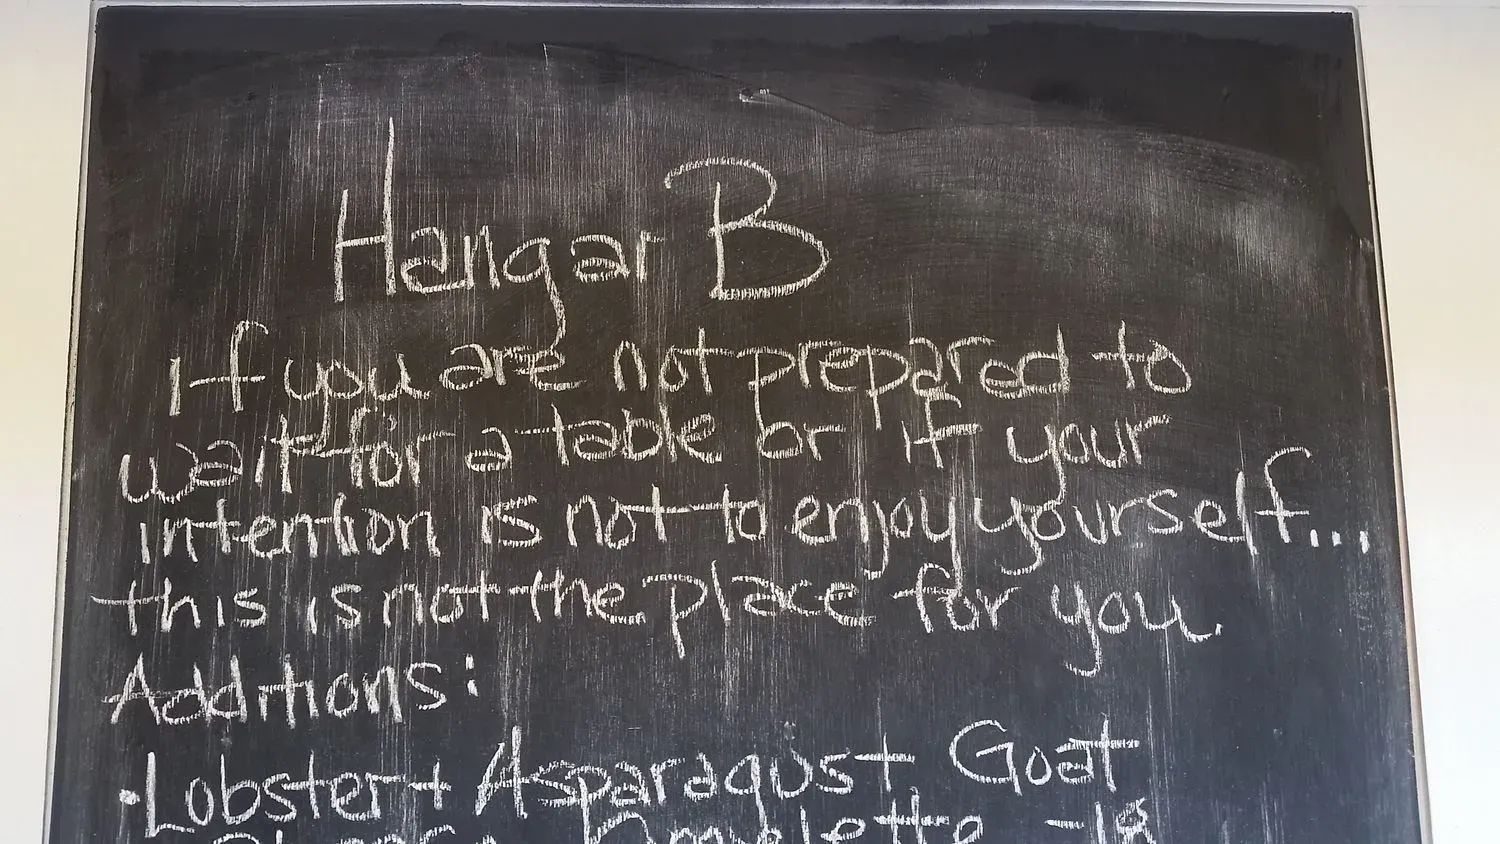 Hangar B
If you are not prepared to
wait for a table or if your
intention is not to enjoy yourself...
this is not the place for you.
Additions:
• Lobster + Asparagus + Goat
Omelette - 18